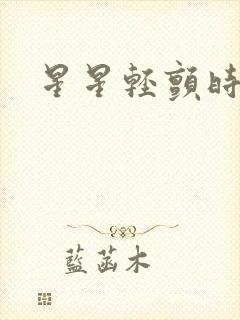 星星輕顫時
藍菡木